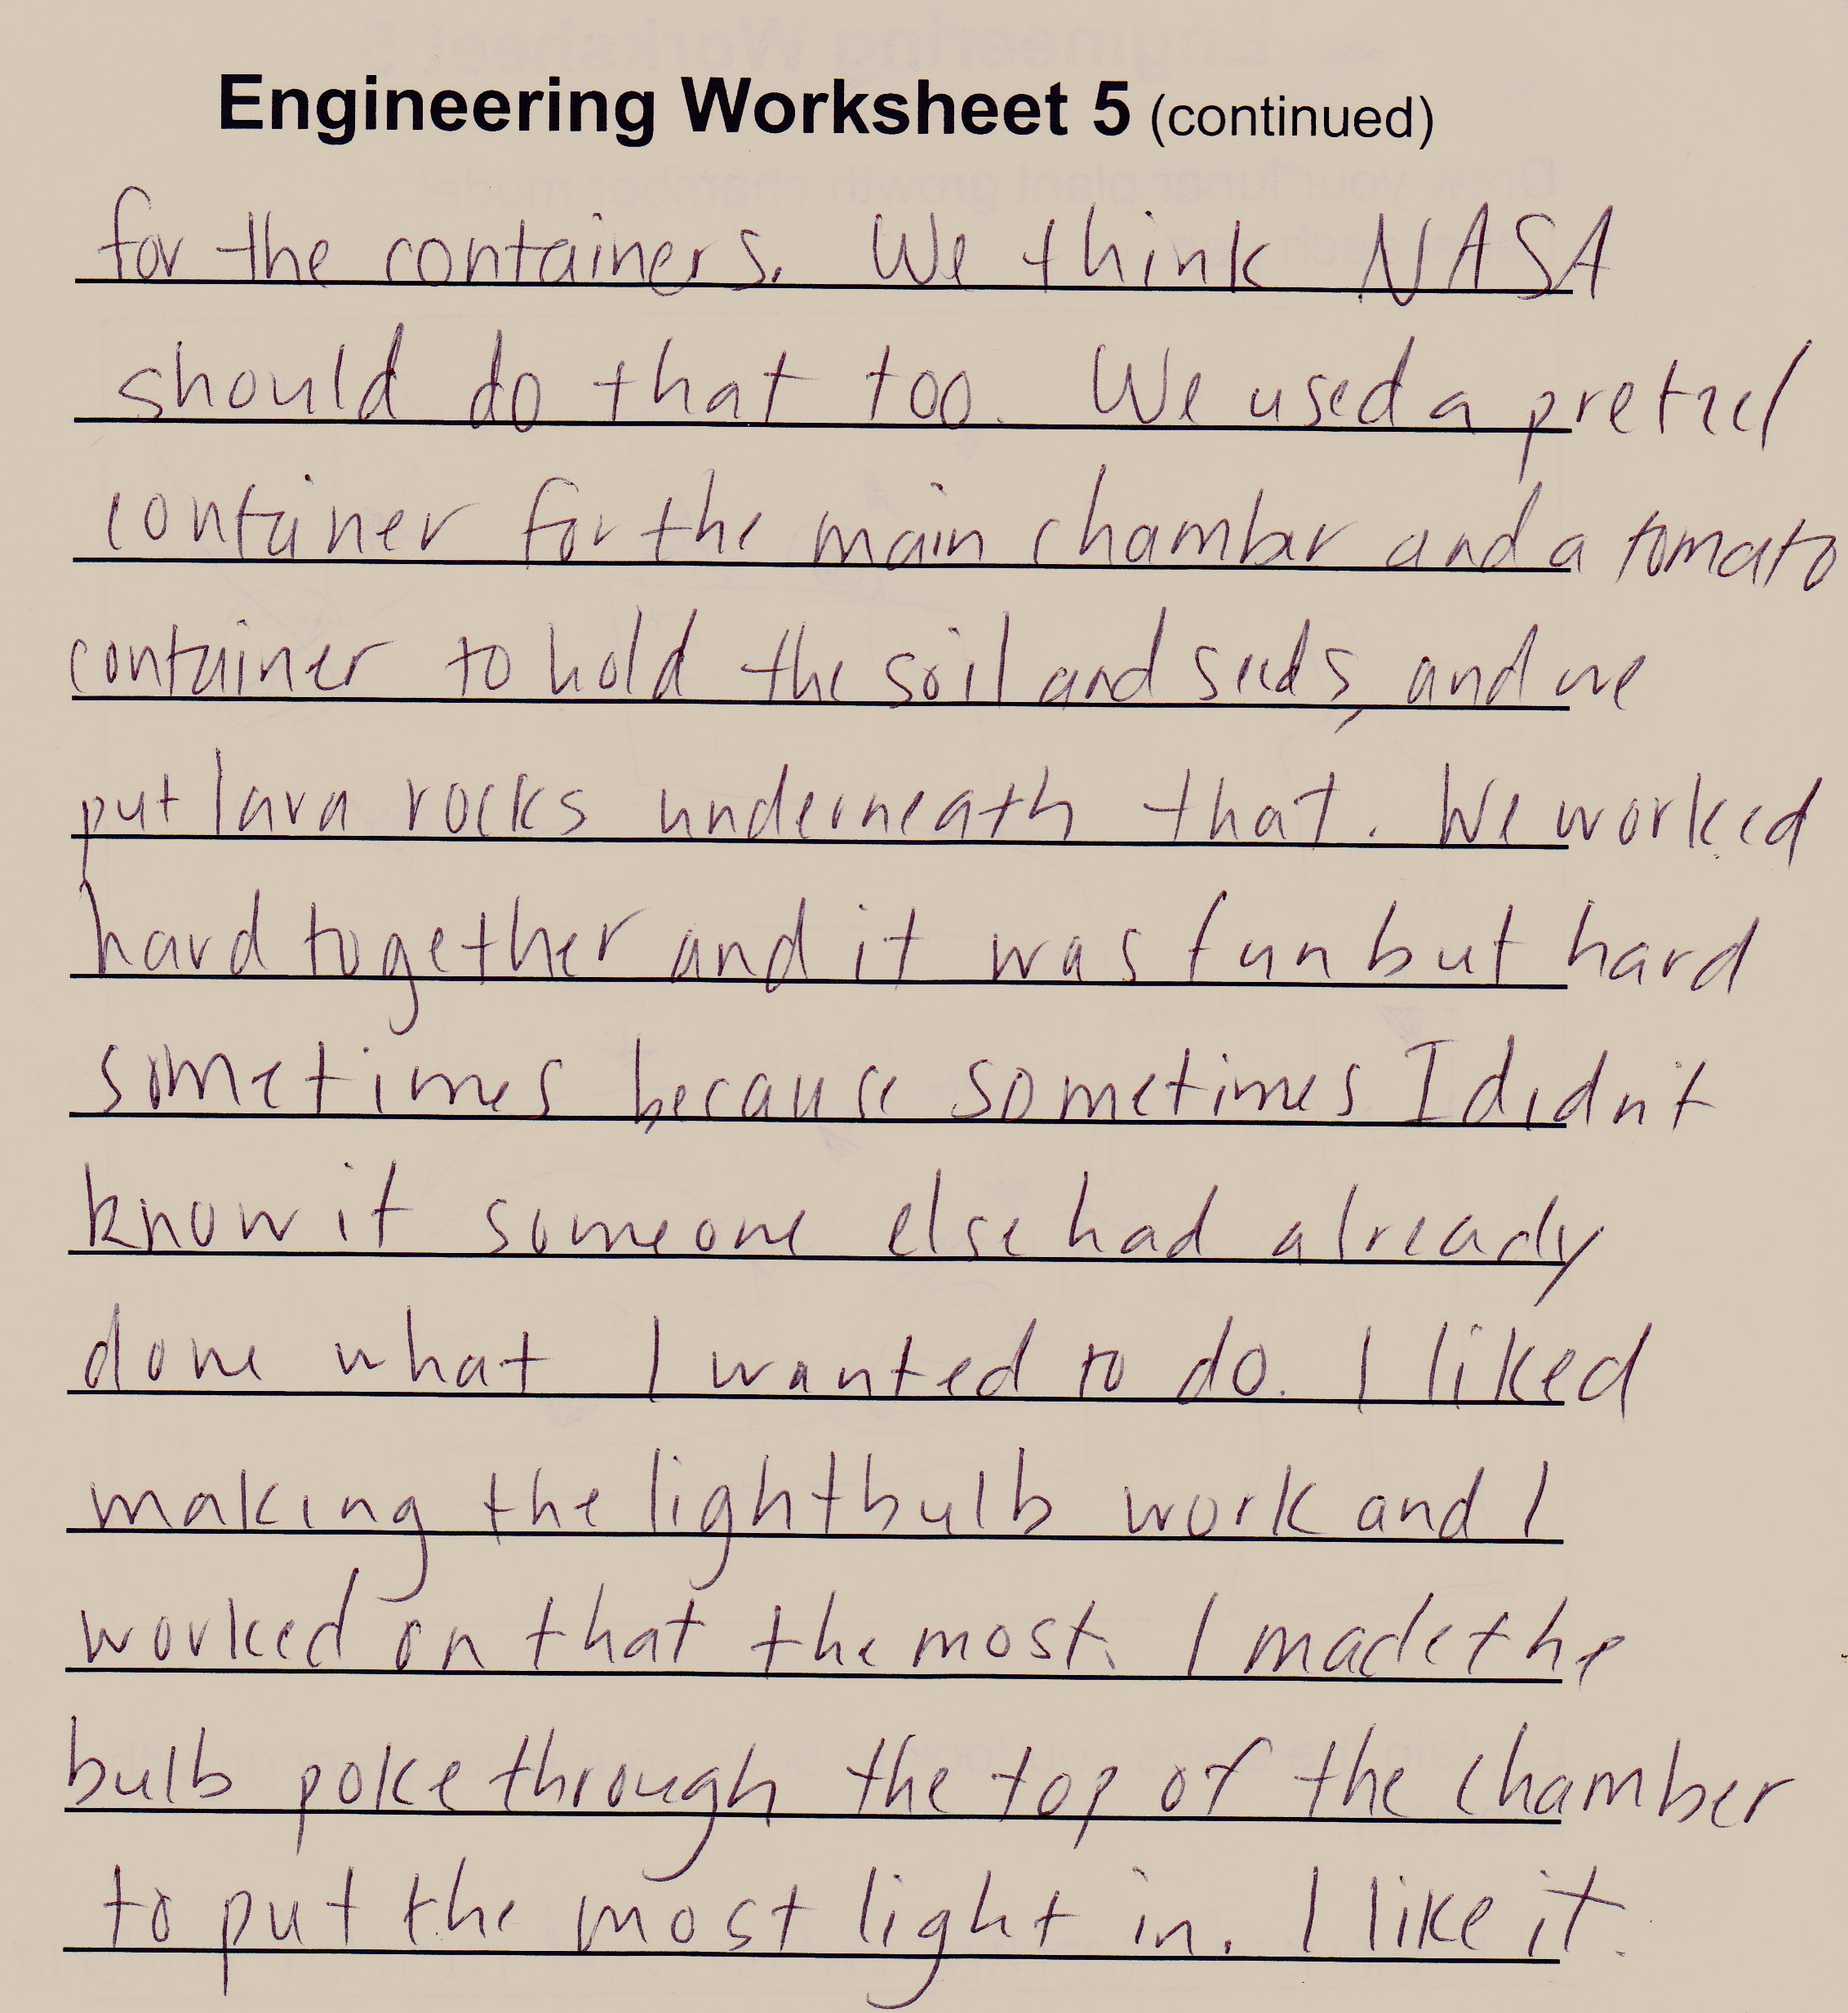 Engineering Worksheet 5 (continued)
for the containers. We think NASA
should do that too. We used a pretzel
container for the main chamber and a tomato
container to hold the soil and seeds, and we
put lava rocks underneath that. We worked
hard together and it was fun but hard
sometimes because sometimes I didn't
know if someone else had already
done what I wanted to do. I liked
making the lightbulb work and I
worked on that the most. I made the
bulb poke through the top of the chamber
to put the most light in. I like it.